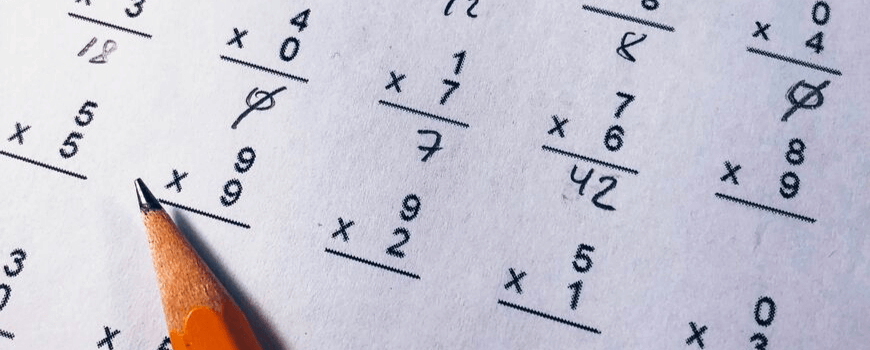 x 3
18
4
x 0
0
1
x 7
7
8
0
x 4
0
5
x 5
9
x 9
7
x 6
42
8
x 9
9
x 2
5
x 1
3
0
x
0
x 3